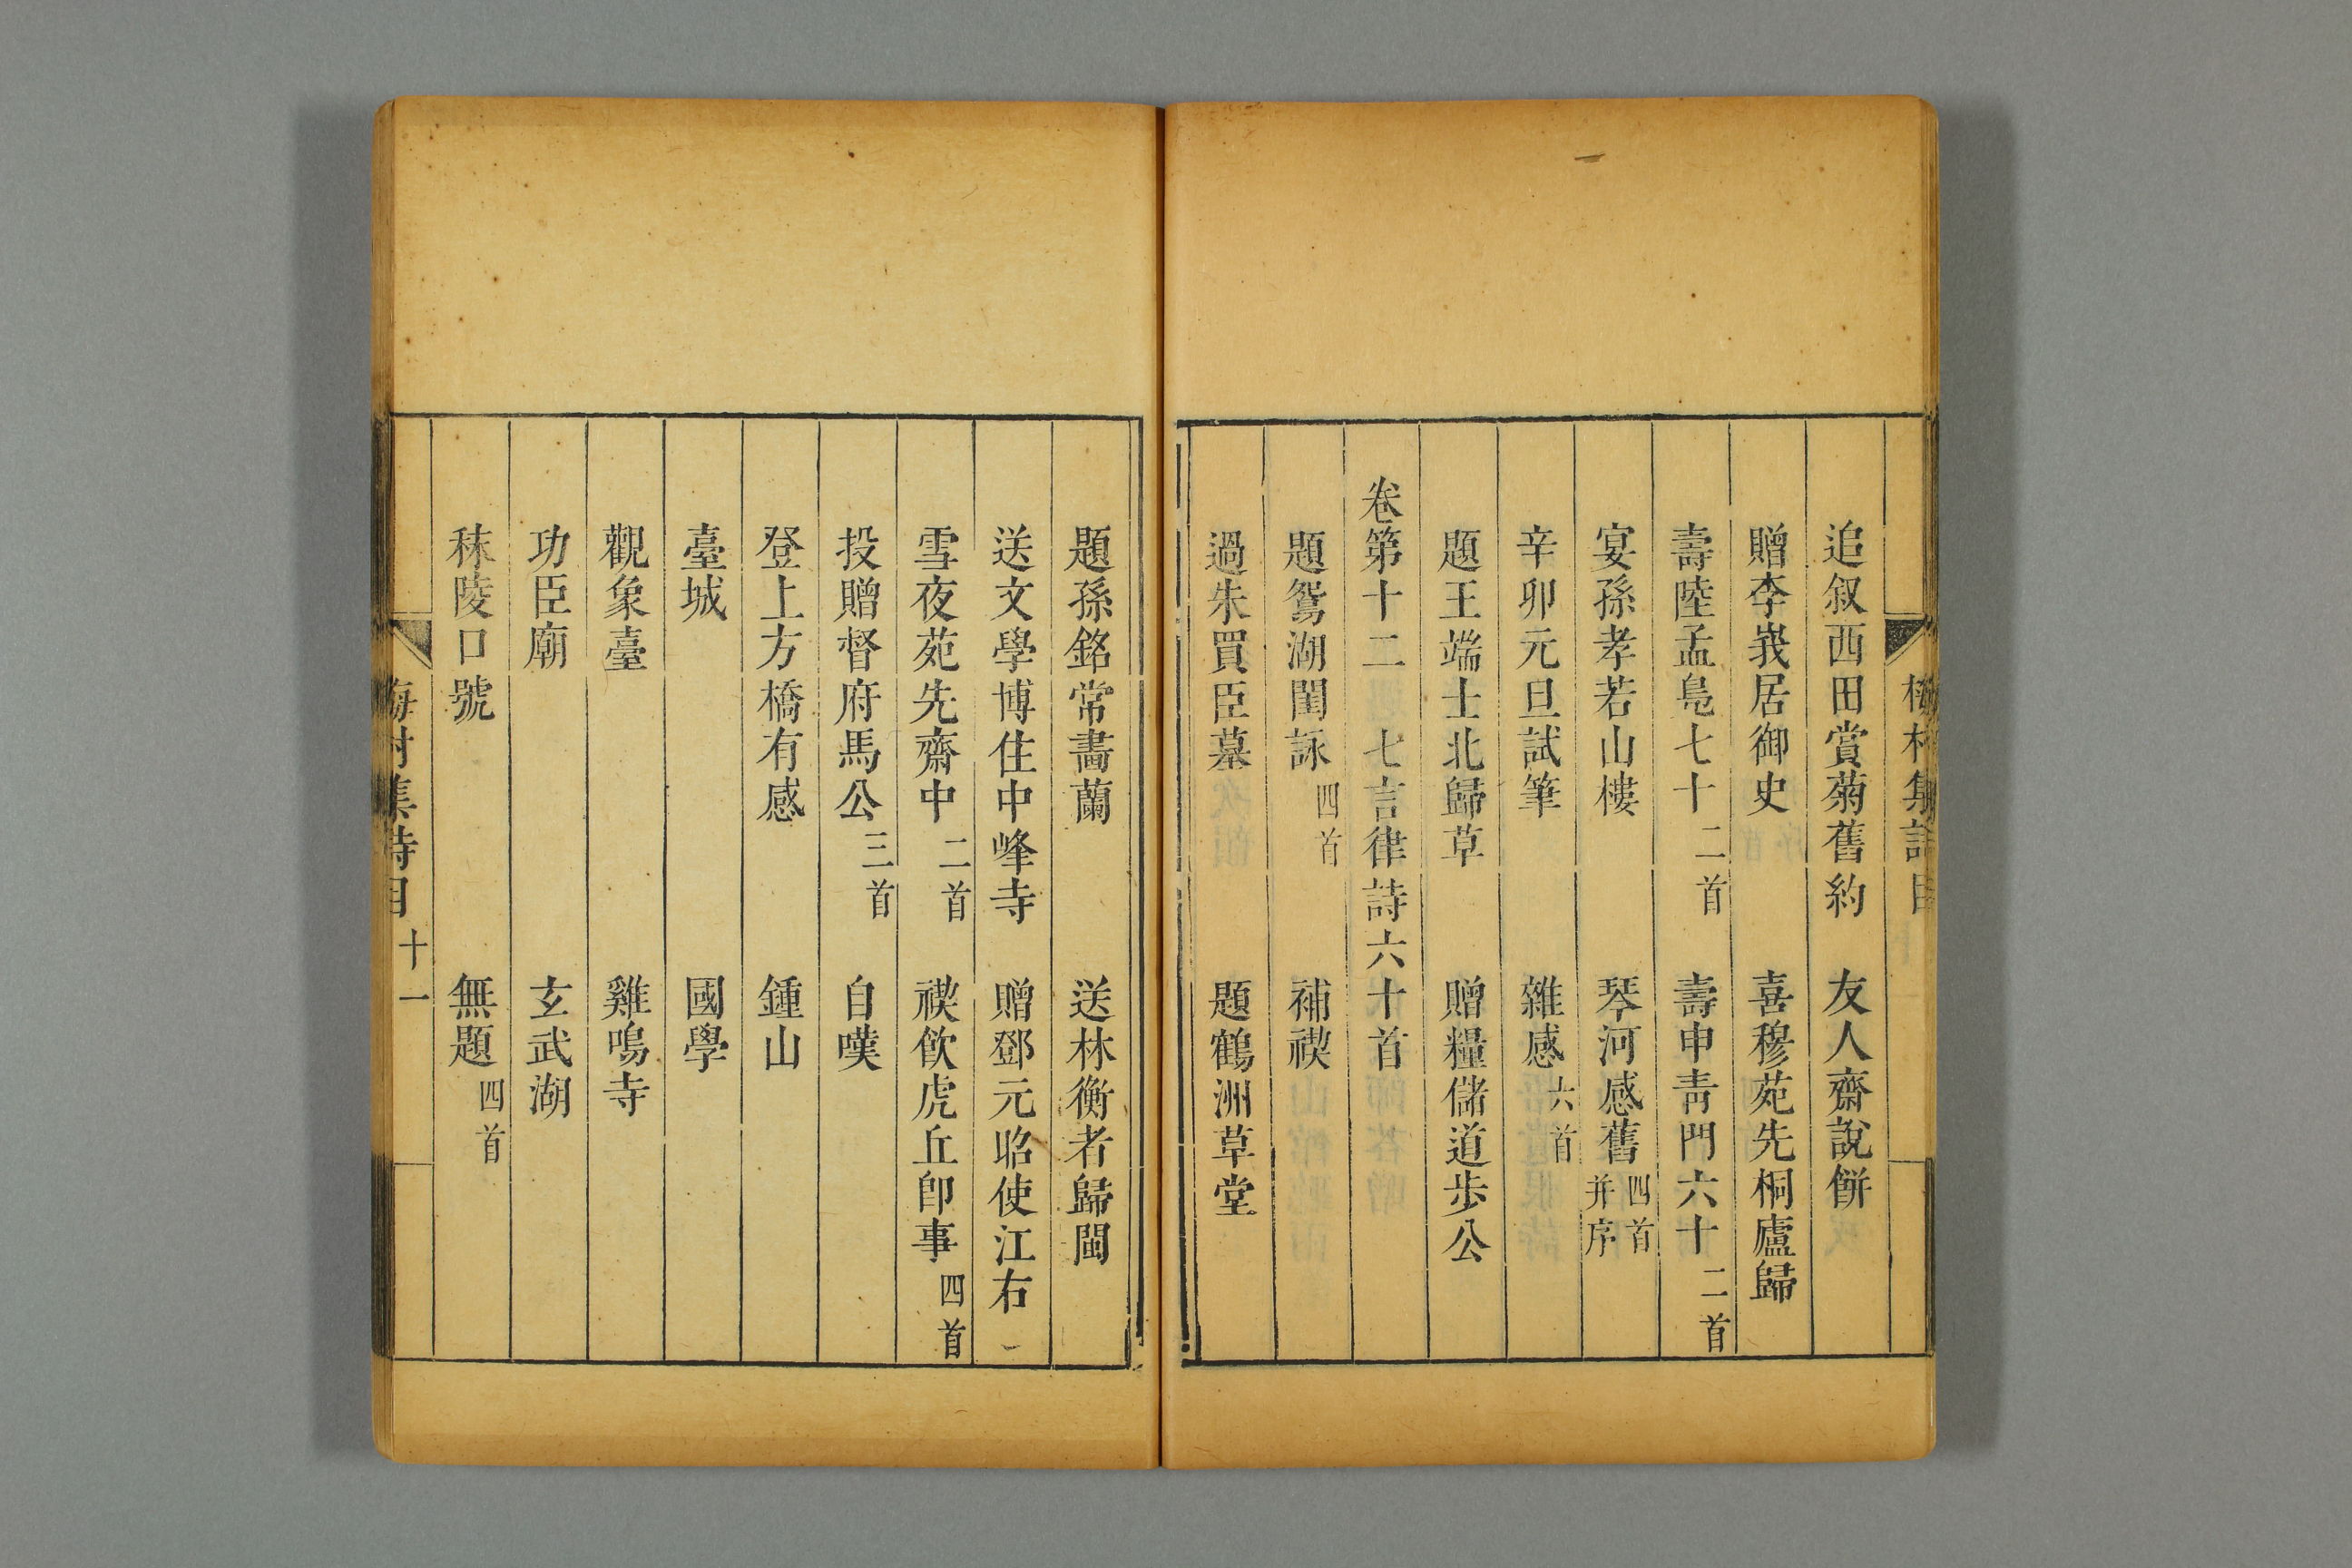 追叙西田賞菊舊約 友人齋說餅
贈李峩居御史 喜穆苑先桐廬歸
壽陸孟鳧七十二首 壽申青門六十二首
宴孫孝若山樓 琴河感舊四首并序
辛卯元旦試筆 雜感六首
題王端士北歸草 贈糧儲道步公
卷第十二 七言律詩六十首
題鴛湖閨詠四首 補禊
過朱買臣墓 題鶴洲草堂
題孫銘常畫蘭 送林衡者歸閩
送文學博住中峰寺 贈鄧元昭使江右
雪夜苑先齋中二首 禊飲虎丘卽事四首
投贈督府馬公三首 自嘆
登上方橋有感 鍾山
臺城 國學
觀象臺 雞鳴寺
功臣廟 玄武湖
秣陵口號 無題四首
梅村集詩目 十一